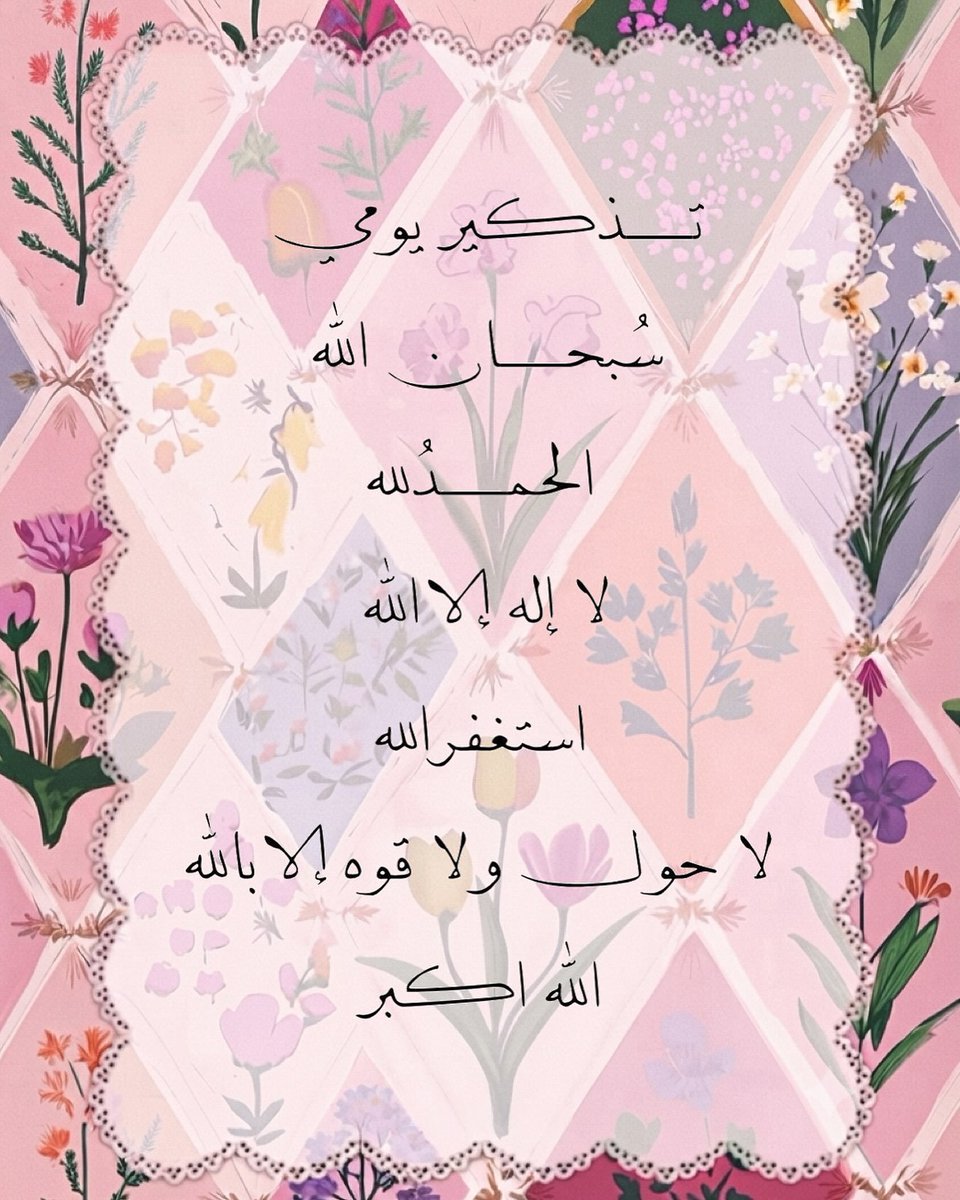 تـــذكير يومي
سُبحـــان الله
الحمـــدُلله
لا إله إلا الله
استغفرالله
لا حول ولا قوه إلا بالله
الله اكبر